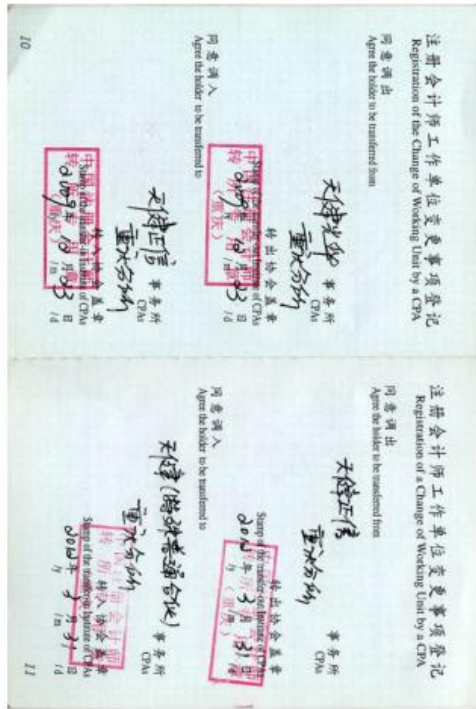 注册会计师工作单位变更事项登记
Registration of the Change of Working Unit by a CPA
同意调出
Agree the holder to be transferred from
天健光华
重庆分所
事务所
CPAs
转出协会盖章
Stamp of the transfer-out Institute of CPAs
2009年12月23日
/y /m /d
同意调入
Agree the holder to be transferred to
天健正信
重庆分所
事务所
CPAs
转入协会盖章
Stamp of the transfer-in Institute of CPAs
2009年12月23日
/y /m /d
10
注册会计师工作单位变更事项登记
Registration of a Change of Working Unit by a CPA
同意调出
Agree the holder to be transferred from
天健正信
重庆分所
事务所
CPAs
转出协会盖章
Stamp of the transfer-out Institute of CPAs
2012年3月31日
/y /m /d
同意调入
Agree the holder to be transferred to
天健(特殊普通合伙)
重庆分所
事务所
CPAs
转入协会盖章
Stamp of the transfer-in Institute of CPAs
2012年3月31日
/y /m /d
11